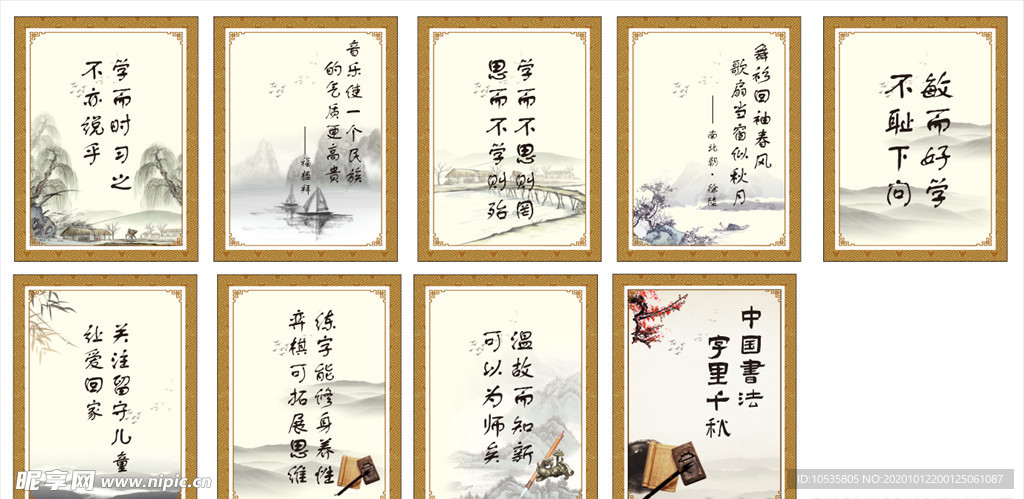 学而时习之
不亦说乎
音乐使一个民族
的气质更高贵
——福楼祥
学而不思则罔
思而不学则殆
舞衫回袖春风
歌扇当窗似秋月
——南北朝·徐陵
敏而好学
不耻下问
关注留守儿童
让爱回家
练字能修身养性
弈棋可拓展思维
温故而知新
可以为师矣
中国書法
字里千秋
昵享网 www.nipic.cn
ID:10535805 NO:20201012200125061087